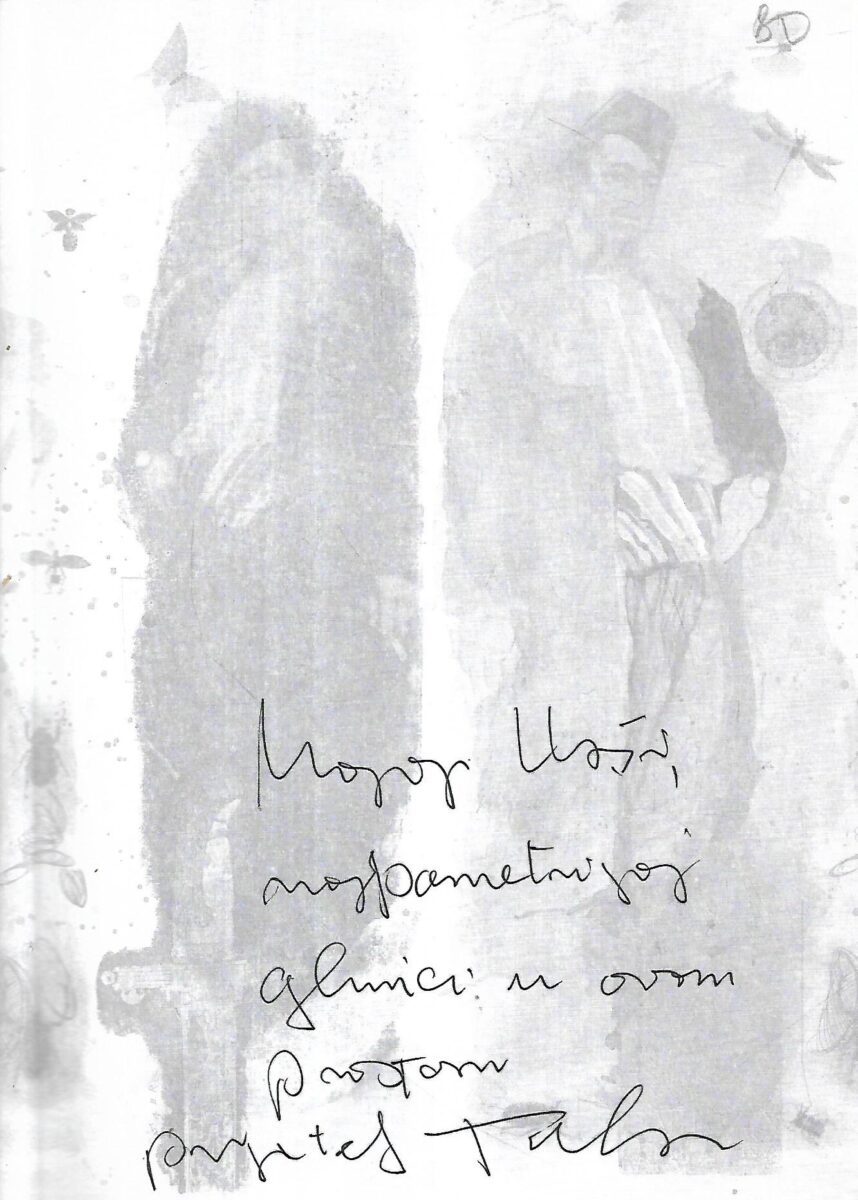 BD
Mojoj
najpametnijoj
glumici u ovom
prostoru
prijatelj